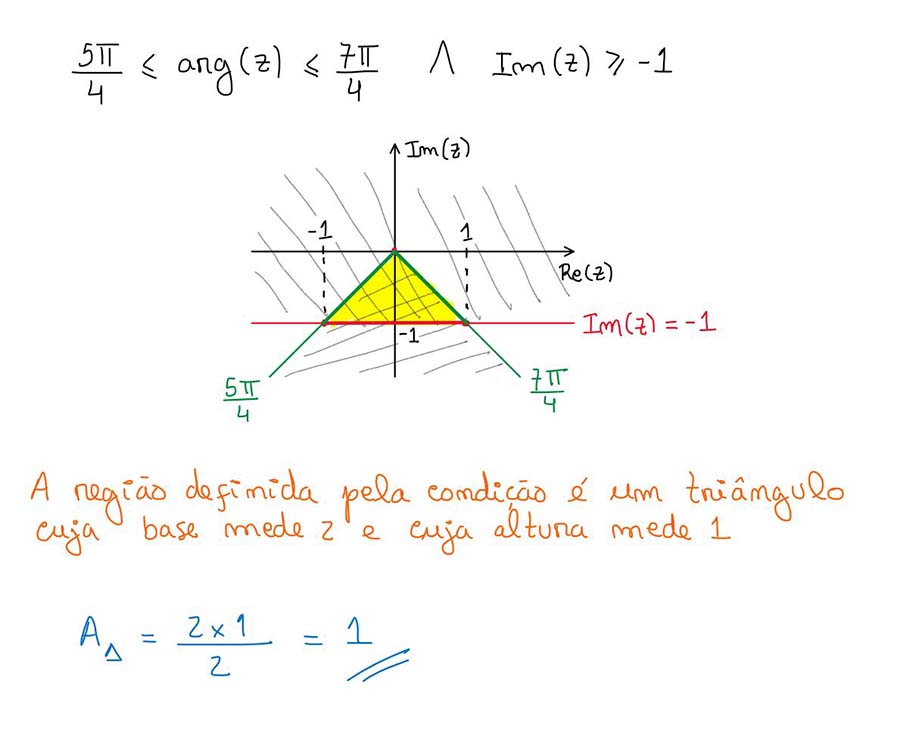 5π/4 ≤ arg(z) ≤ 7π/4 ∧ Im(z) ≥ -1
Im(z)
-1
1
Re(z)
Im(z) = -1
-1
5π/4
7π/4
A região definida pela condição é um triângulo
cuja base mede 2 e cuja altura mede 1
A△ = 2×1/2 = 1